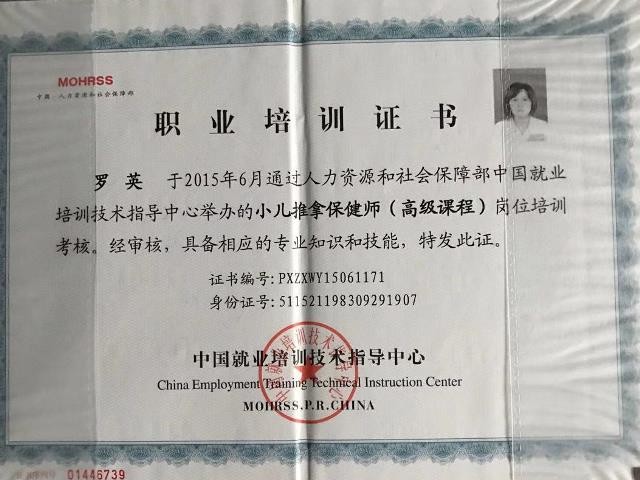 MOHRSS
中国·人力资源和社会保障部
职业培训证书
罗英 于2015年6月通过人力资源和社会保障部中国就业
培训技术指导中心举办的小儿推拿保健师（高级课程）岗位培训
考核。经审核，具备相应的专业知识和技能，特发此证。
证书编号：PXZXWY15061171
身份证号：511521198309291907
中国就业培训技术指导中心
China Employment Training Technical Instruction Center
MOHRSS.P.R.CHINA
01446739